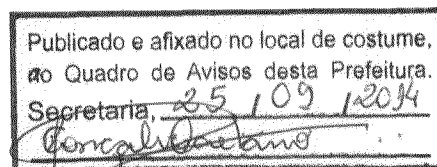 Publicado e afixado no local de costume,
no Quadro de Avisos desta Prefeitura.
Secretaria, 25 / 09 / 2014